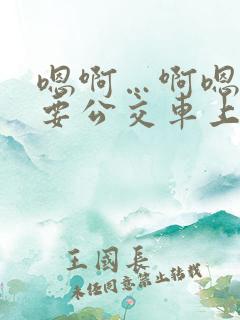 嗯啊…啊嗯
要公交车上
王国长
未经同意禁止转载